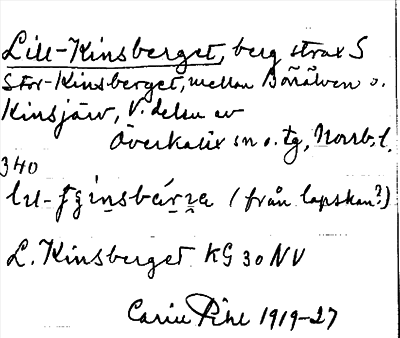 Lill-Kinsberget, berg strax S
Stor-Kinsberget, mellan Börälven o.
Kinsjärv, V. delen av
Överkalix sn o. tg, Norrb. l.
340
(från lapskan?)
L. Kinsberget KG 30 NV
Carin Pihl 1919-27